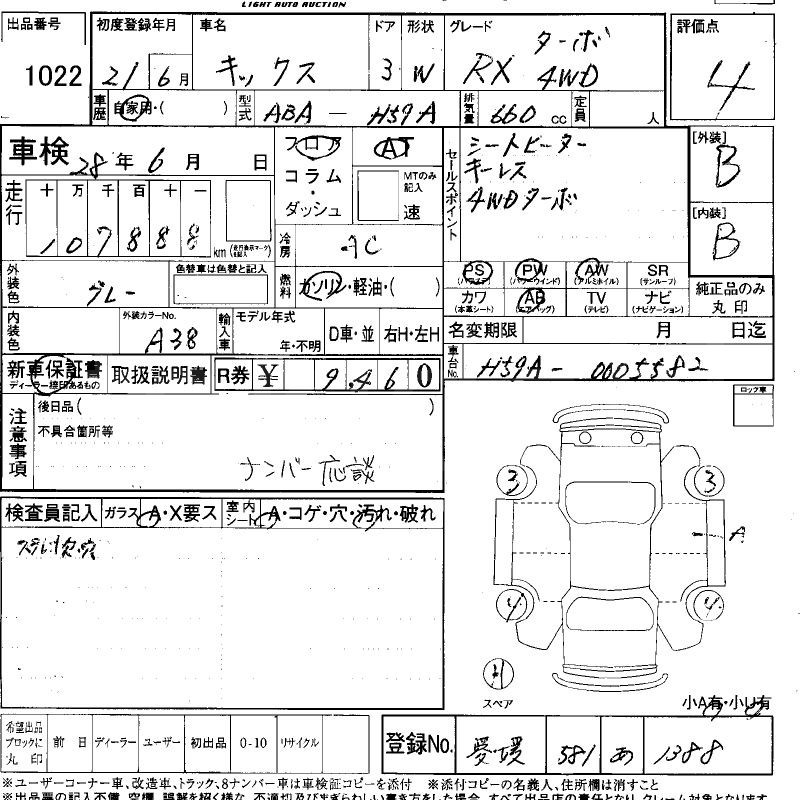 LIGHT AUTO AUCTION
出品番号 1022
初度登録年月 21年 6月
車名 キックス
ドア 3 形状 W
グレード RX ターボ 4WD
評価点 4
車歴 自家用・( )
型式 ABA - H59A
排気量 660 cc 定員 人
車検 28年 6月 日
フロア コラム・ダッシュ
AT MTのみ記入 速
セールスポイント
シートヒーター
キーレス
4WDターボ
[外装] B
[内装] B
走行 十万千百十一
107888 km
冷房 AC
燃料 ガソリン・軽油・( )
外装色 グレー
色替車は色替と記入
PS (パワステ) PW (パワーウインド) AW (アルミホイル) SR (サンルーフ)
カワ (本革シート) AB (エアバッグ) TV (テレビ) ナビ (ナビゲーション)
純正品のみ丸印
内装色
外装カラーNo. A38
輸入車 モデル年式 年・不明 D車・並 右H・左H
名変期限 月 日迄
新車保証書 ディーラー線印あるもの
取扱説明書
R券 ¥ 9,460
車台No. H59A - 0005582
ロック車
注意事項
後日品( )
不具合箇所等
ナンバー応談
検査員記入
ガラス A・X要ス
室内シート A・コゲ・穴・汚れ・破れ
3 3
A
4 4
スペア
小A有・小U有
希望出品ブロックに丸印
前日 ディーラー ユーザー 初出品 0-10 リサイクル
登録No. 愛媛 581 あ 1388
※ユーザーコーナー車、改造車、トラック、8ナンバー車は車検証コピーを添付 ※添付コピーの名義人、住所欄は消すこと